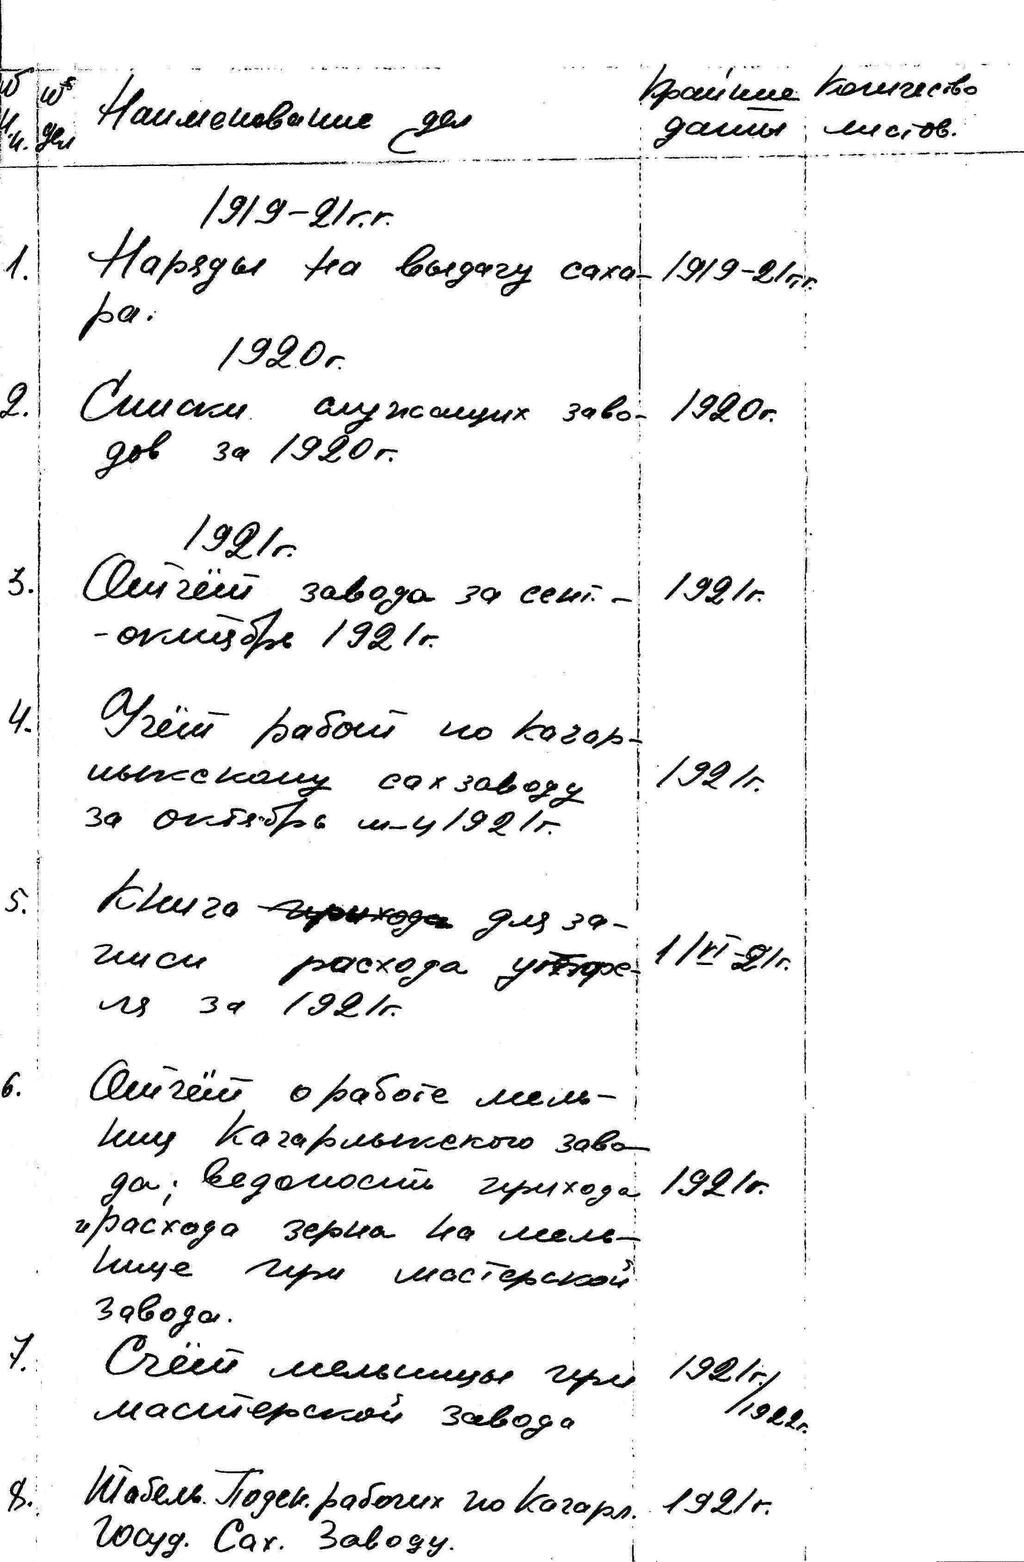 № № Наименование дел Крайние Количество
п.п. дел даты листов.
1919-21г.г.
1. Наряды на выдачу саха- 1919-21г.г.
ра.
1920г.
2. Списки служащих заво- 1920г.
дов за 1920г.
1921г.
3. Отчёт завода за сент.- 1921г.
-октябрь 1921г.
4. Учёт работ по Кагар-
лыкскому сахзаводу 1921г.
за октябрь м-ц 1921г.
5. Книга прихода для за-
писи расхода угле- 1/VI-21г.
ля за 1921г.
6. Отчёт о работе мель-
ниц Кагарлыкского заво-
да; ведомость прихода 1921г.
и расхода зерна на мель-
нице при мастерской
завода.
7. Счёт мельницы при 1921г./
мастерской завода /1922г.
8. Табель Поден. рабочих по Кагарл. 1921г.
Госуд. Сах. Заводу.